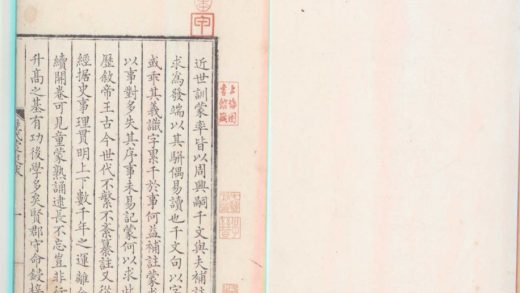 近世訓蒙率皆以周興嗣千文與夫補註
求爲發端以其駢偶易讀也千文句以字
或乖其義識字累千於事何益補註蒙求
以事對多失其序事未易記蒙何以求此
歷敘帝王古今世代不繁不紊纂註又從
經据史事理貫明上下數千年之運離合
續開卷可見童蒙熟誦逮長不忘豈非行
升高之基有功後學多矣賢郡守命鋟梓
上海圖書館藏